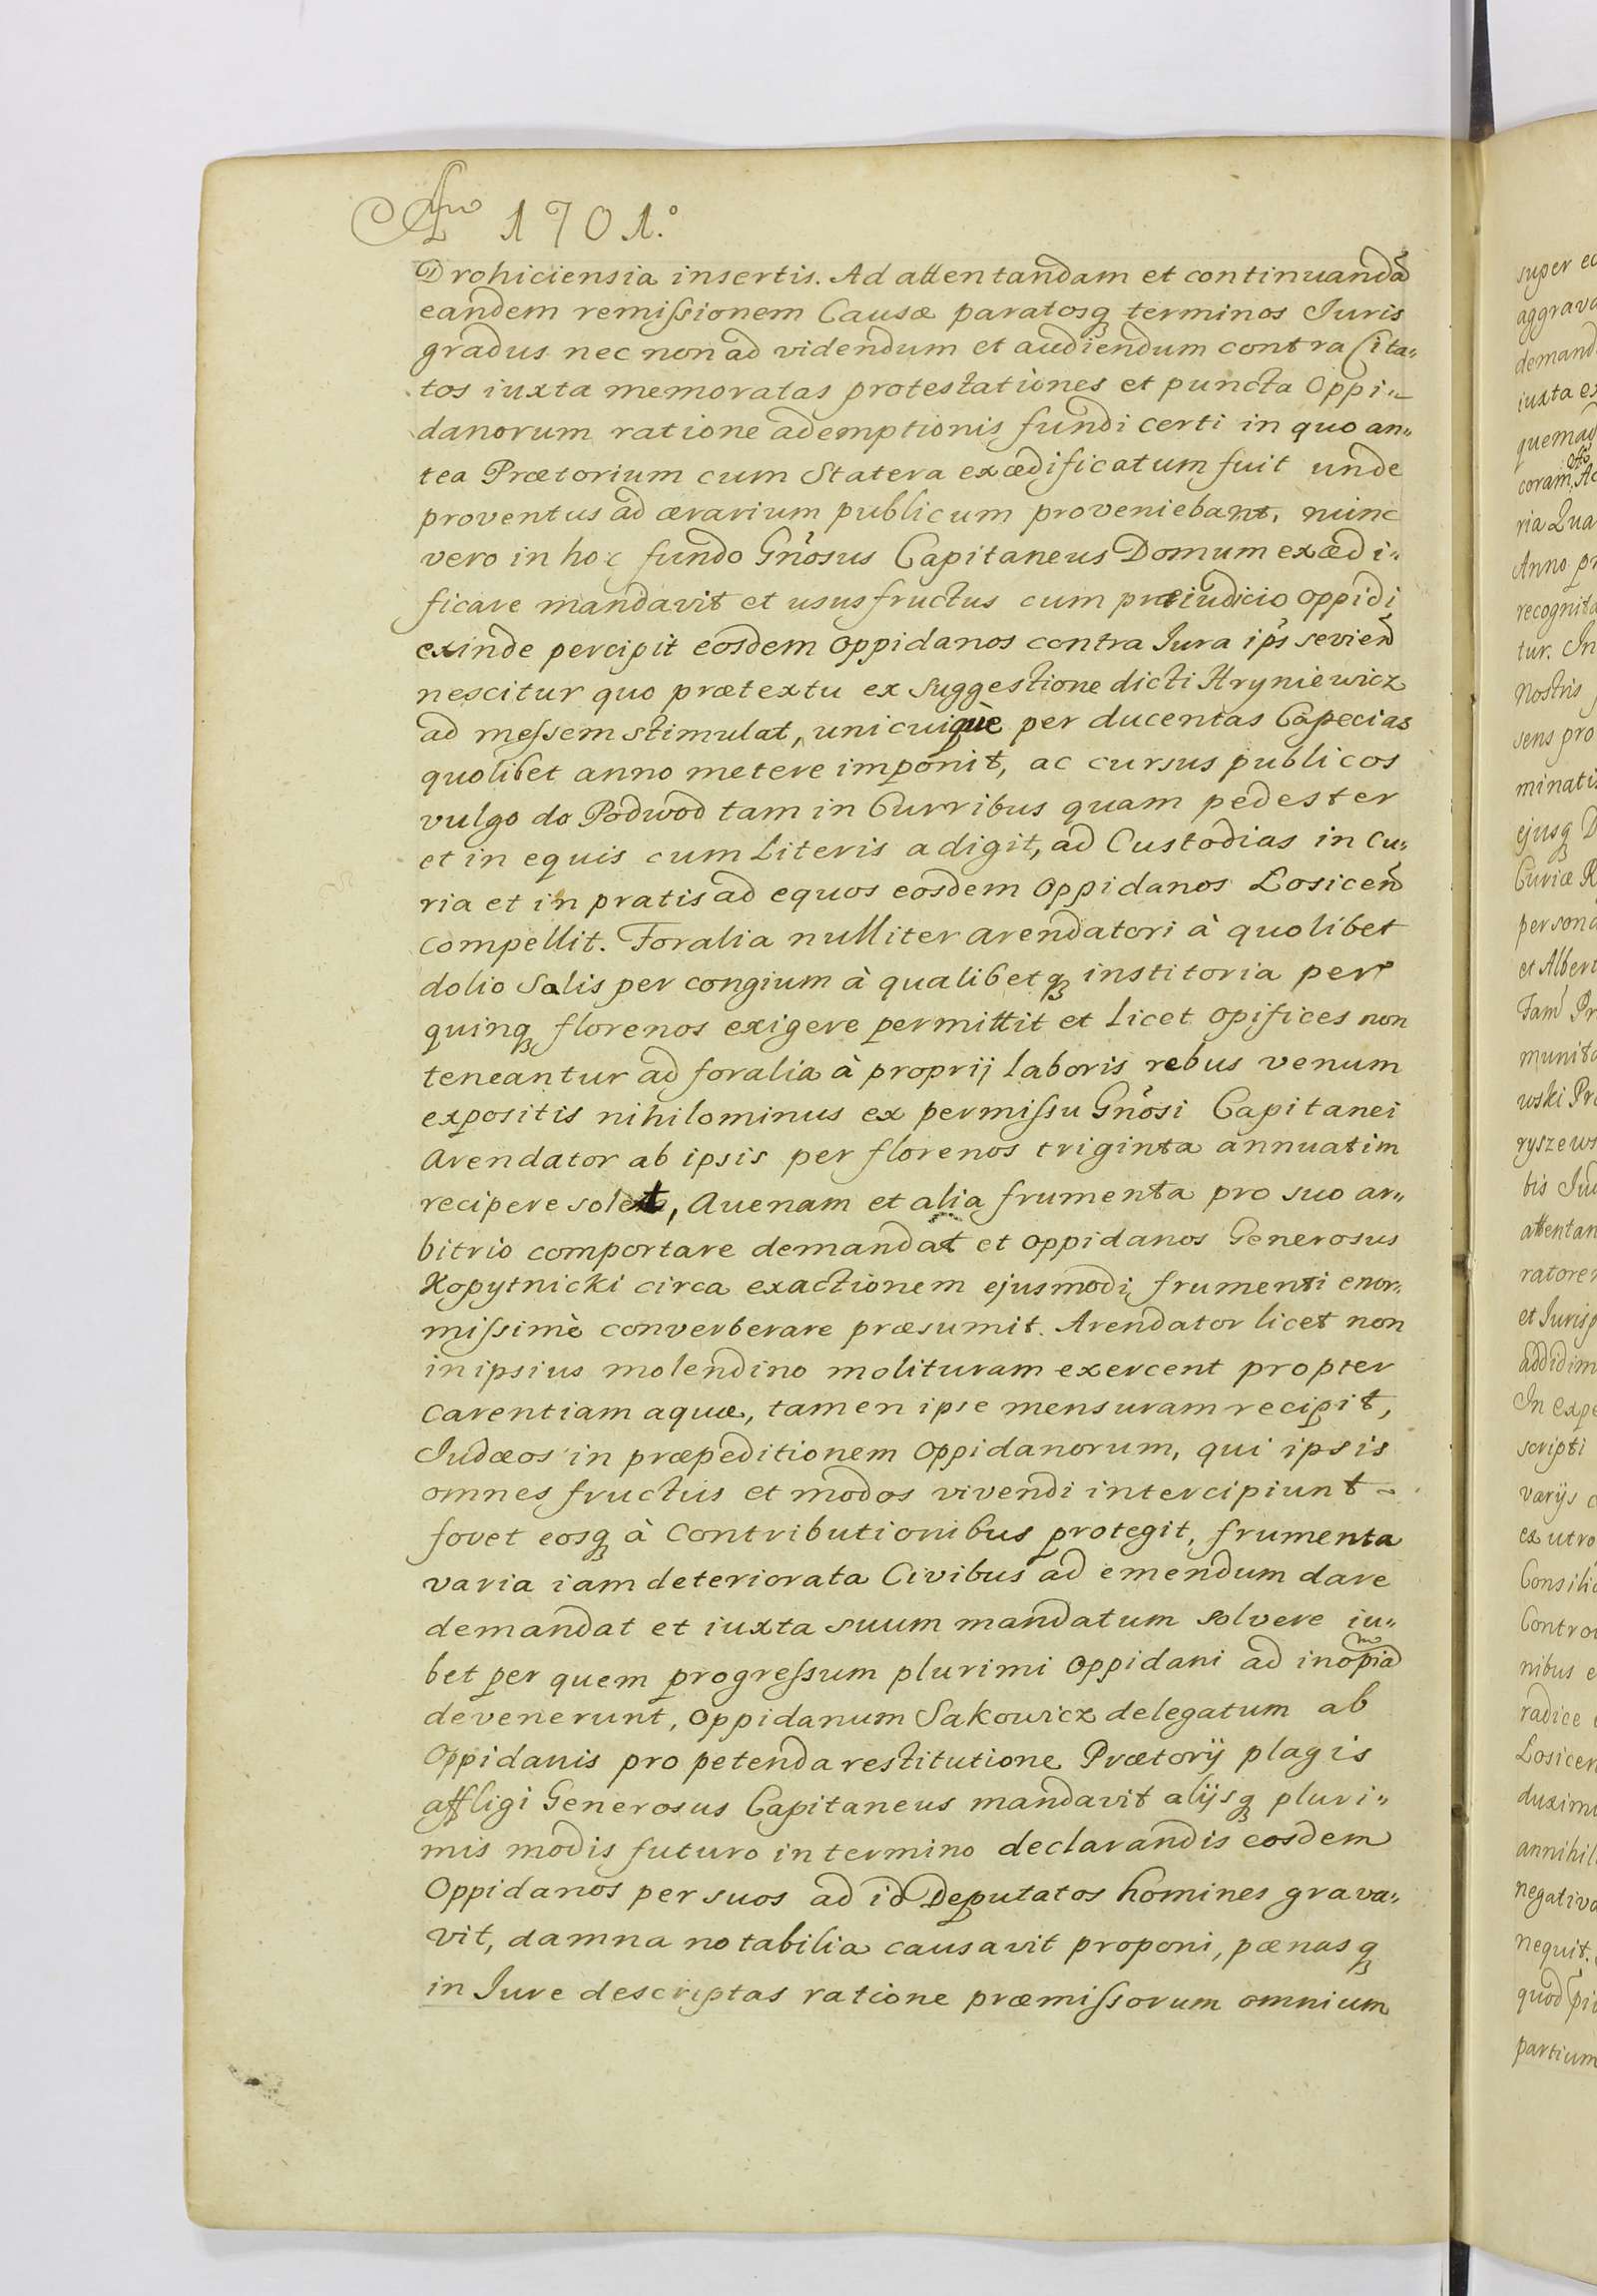 Ano 1701.o
Drohiciensia insertis. Ad attentandam et continuandã
eandem remissionem Causæ paratosq terminos Iuris
gradus nec non ad videndum et audiendum contra Cita„
tos iuxta memoratas protestationes et puncta Oppi„
danorum ratione ademptionis fundi certi in quo an„
tea Prætorium cum Statera exædificatum fuit unde
proventus ad ærarium publicum proveniebant, nunc
vero in hoc fundo Gñosus Capitaneus Domum exædi„
ficare mandavit et ususfructus cum præiudicio oppidi
exinde percipit eosdem oppidanos contra Iura ips sevien
nescitur quo prætextu ex suggestione dicti Hryniewicz
ad messem stimulat, unicuiquè per ducentas Capecias
quolibet anno metere imponit, ac cursus publicos
vulgo do Podwod tam in Curribus quam pedester
et in equis cum Literis adigit, ad Custodias in Cu„
ria et in pratis ad equos eosdem oppidanos Losicen
compellit. Foralia nulliter arendatori à quolibet
dolio Salis per congium à qualibetq institoria per
quinq florenos exigere permittit et licet opifices non
teneantur ad foralia à proprij laboris rebus venum
expositis nihilominus ex permissu Gñosi Capitanei
Arendator ab ipsis per florenos triginta annuatim
recipere solet, Auenam et alia frumenta pro suo ar„
bitrio comportare demandat et oppidanos Generosus
Kopytnicki circa exactionem ejusmodi frumenti enor„
missimè converberare præsumit. Arendator licet non
in ipsius molendino molituram exercent propter
carentiam aquæ, tamen ipse mensuram recipit,
Iudæos in præpeditionem oppidanorum, qui ipsis
omnes fructus et modos vivendi intercipiunt
fovet eosq à Contributionibus protegit, frumenta
varia iam deteriorata Civibus ad emendum dare
demandat et iuxta suum mandatum solvere iu„
bet per quem progressum plurimi oppidani ad inopiam
devenerunt, oppidanum Sakowicz delegatum ab
Oppidanis pro petenda restitutione Prætorij plagis
affligi Generosus Capitaneus mandavit alijsq pluri„
mis modis futuro in termino declarandis eosdem
Oppidanos per suos ad id Deputatos homines grava„
vit, damna notabilia causavit proponi, pænasq
in Iure descriptas ratione præmissorum omnium